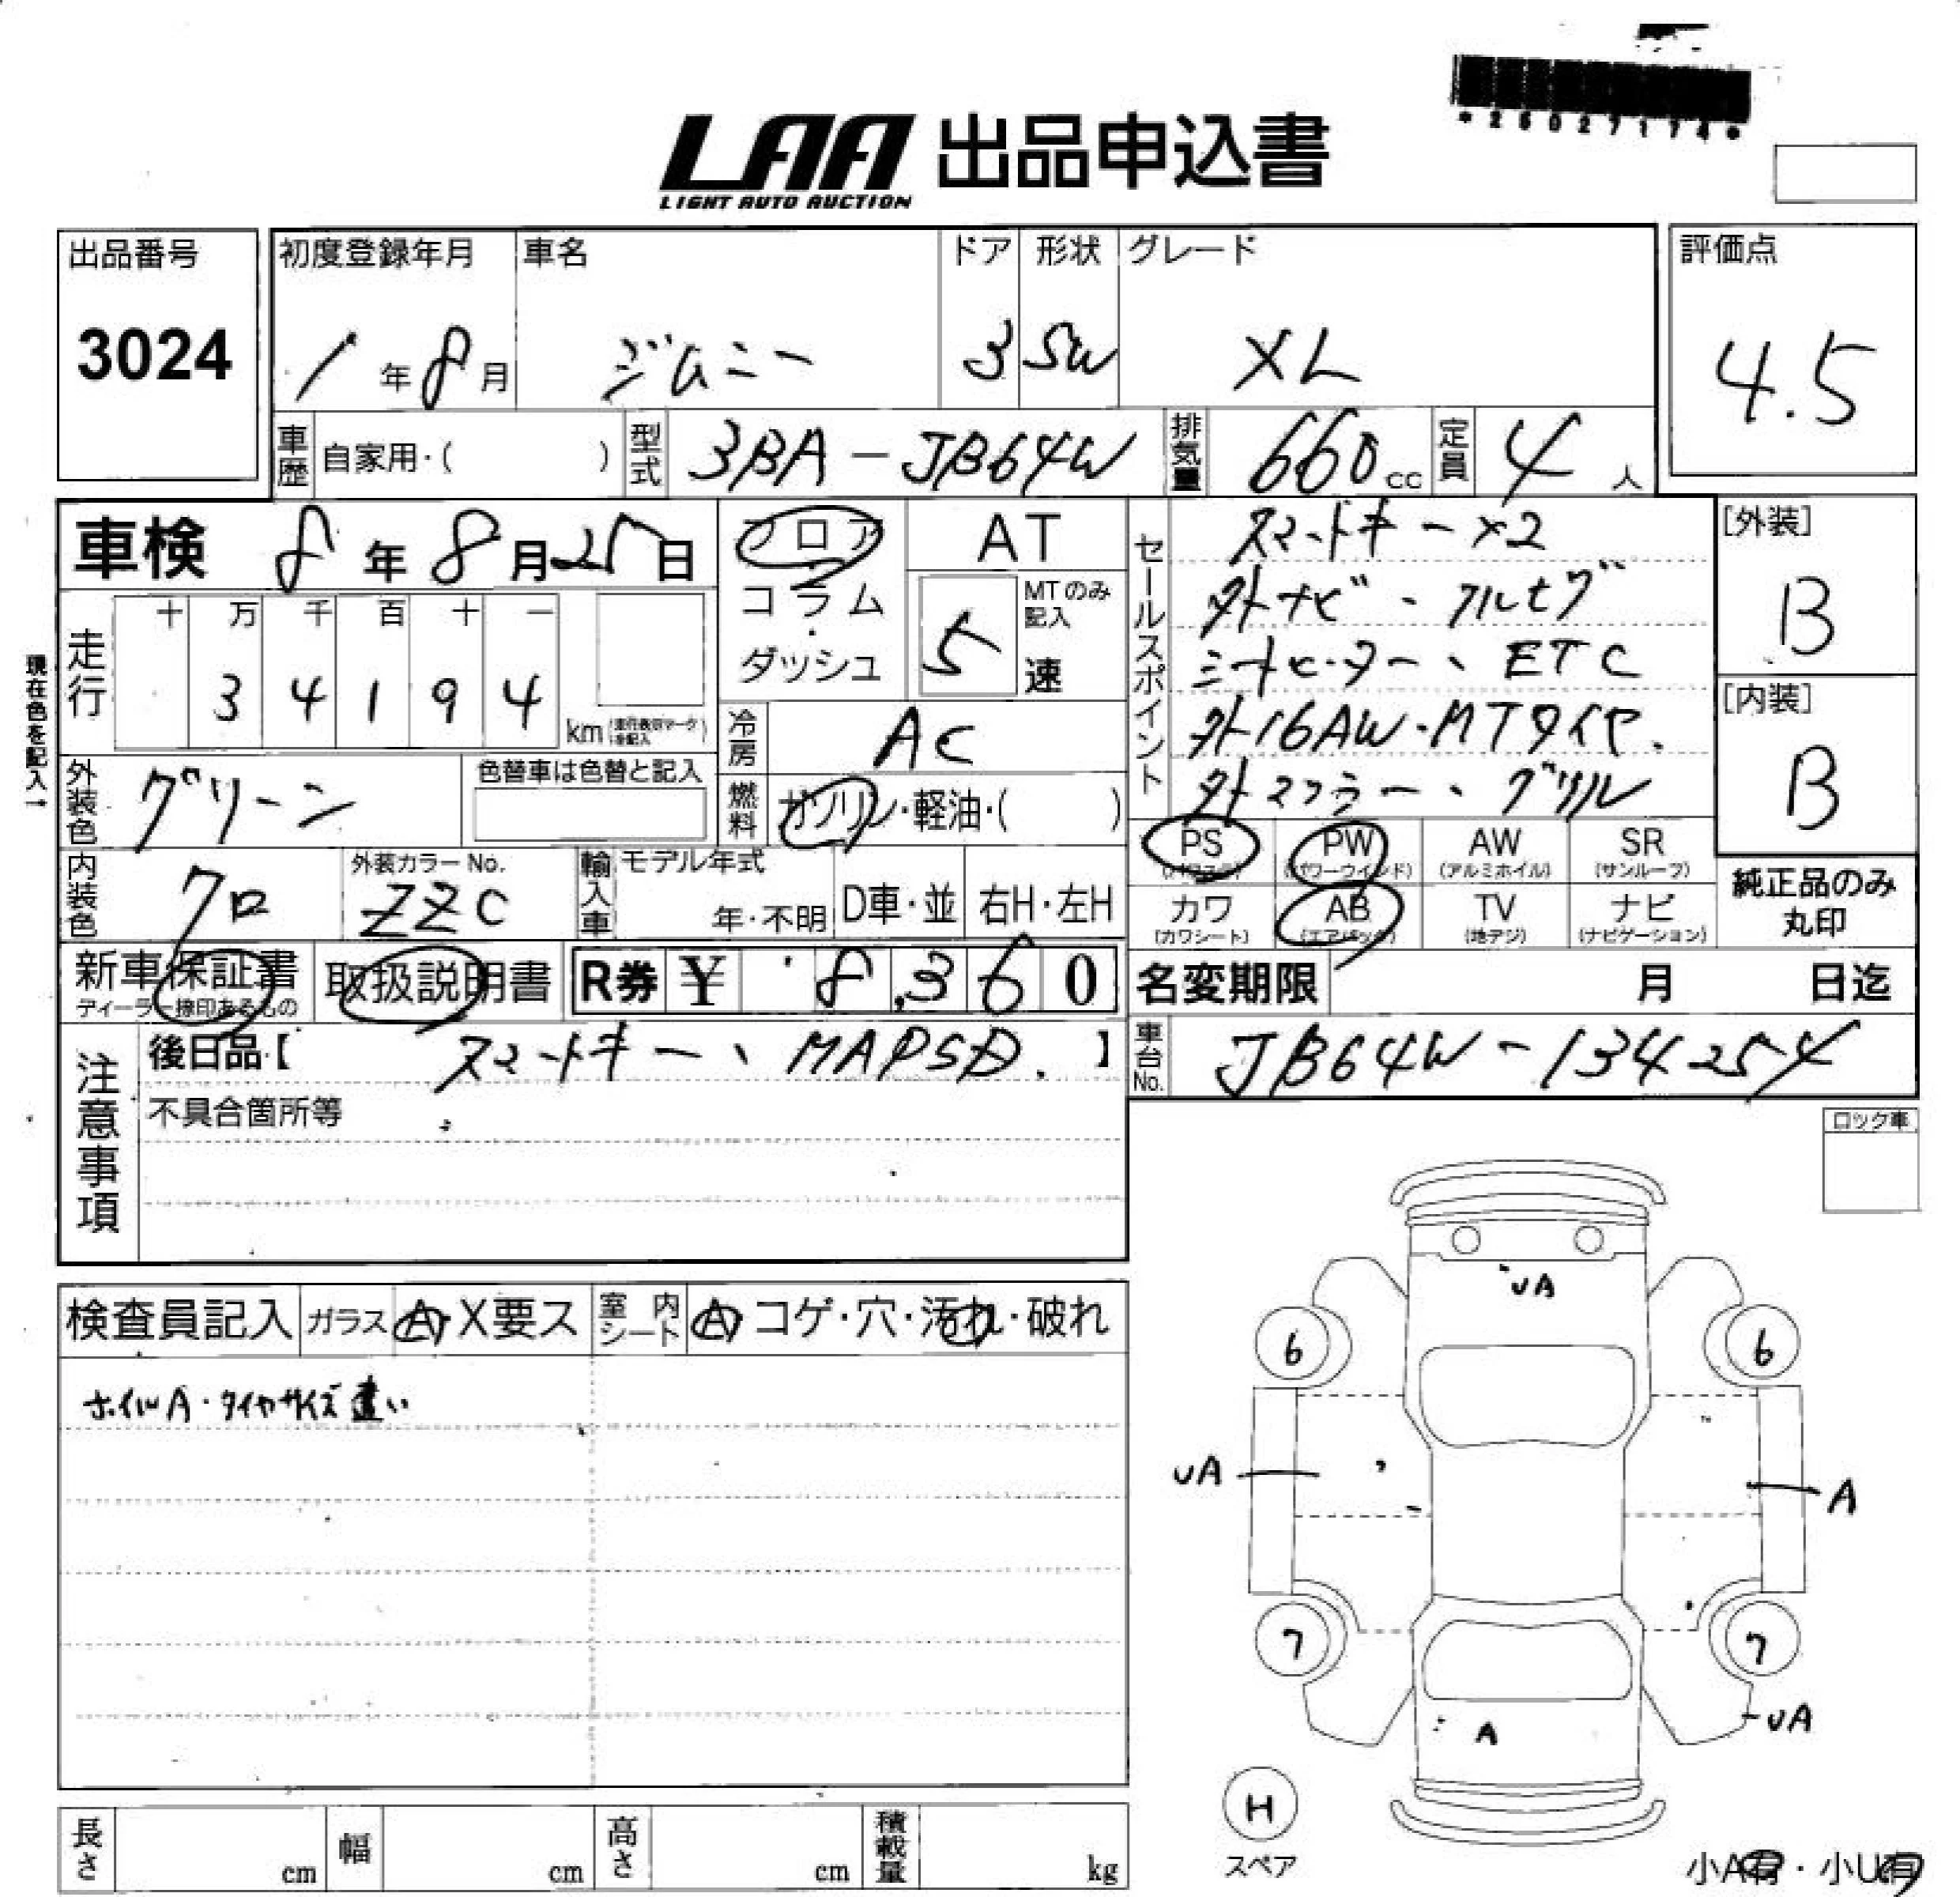 *26027174*
LAA 出品申込書
LIGHT AUTO AUCTION
出品番号 3024
初度登録年月 1年8月
車名 ジムニー
ドア 3
形状 SW
グレード XL
評価点 4.5
車歴 自家用・( )
型式 3BA-JB64W
排気量 660cc
定員 4人
車検 8年8月25日
フロア
コラム
ダッシュ
AT
MTのみ記入
5速
セールスポイント
スマートキー×2
外ナビ・フルセグ
シートヒーター、ETC
外16AW・MTタイヤ.
外マフラー、グリル
[外装] B
[内装] B
現在色を記入→
走行 十 万 千 百 十 一
3 4 1 9 4 km
冷房 AC
外装色 グリーン
色替車は色替と記入
燃料 ガソリン・軽油・( )
PS AW SR
PW
(パワーウインド) (アルミホイル) (サンルーフ)
カワ AB TV ナビ
(カワシート) (エアバック) (地デジ) (ナビゲーション)
純正品のみ丸印
内装色 クロ
外装カラーNo. ZZC
輸入車 モデル年式
年・不明 D車・並 右H・左H
新車保証書
取扱説明書
R券 ¥ 8,360
名変期限 月 日迄
注意事項
後日品【 スマートキー、MAPSD. 】
車台No. JB64W-134254
不具合箇所等
ロック車
検査員記入 ガラス A・X要ス 室内シート A・コゲ・穴・汚れ・破れ
ホイルA・タイヤサイズ違い
UA
6 6
UA A
7 7
A UA
H
スペア
長さ cm 幅 cm 高さ cm 積載量 kg
小A有・小U有